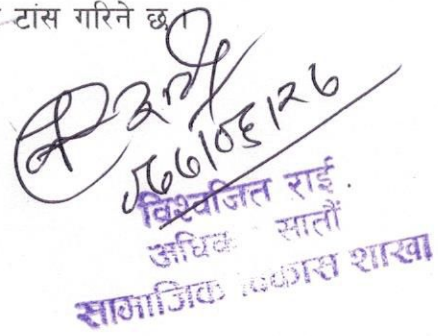 टांस गरिने छ।
विश्वजित राई
अधिकृत सातौं
सामाजिक विकास शाखा